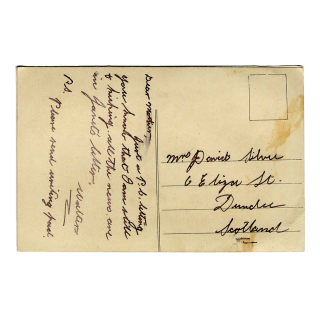 Dear Mother,
Just a P.C. letting
you know that I am still
keeping. all the news are
in Janets letter.
Walter
P.S. Please send writing pad.
Mrs David
6 Eliza St.
Dundee
Scotland